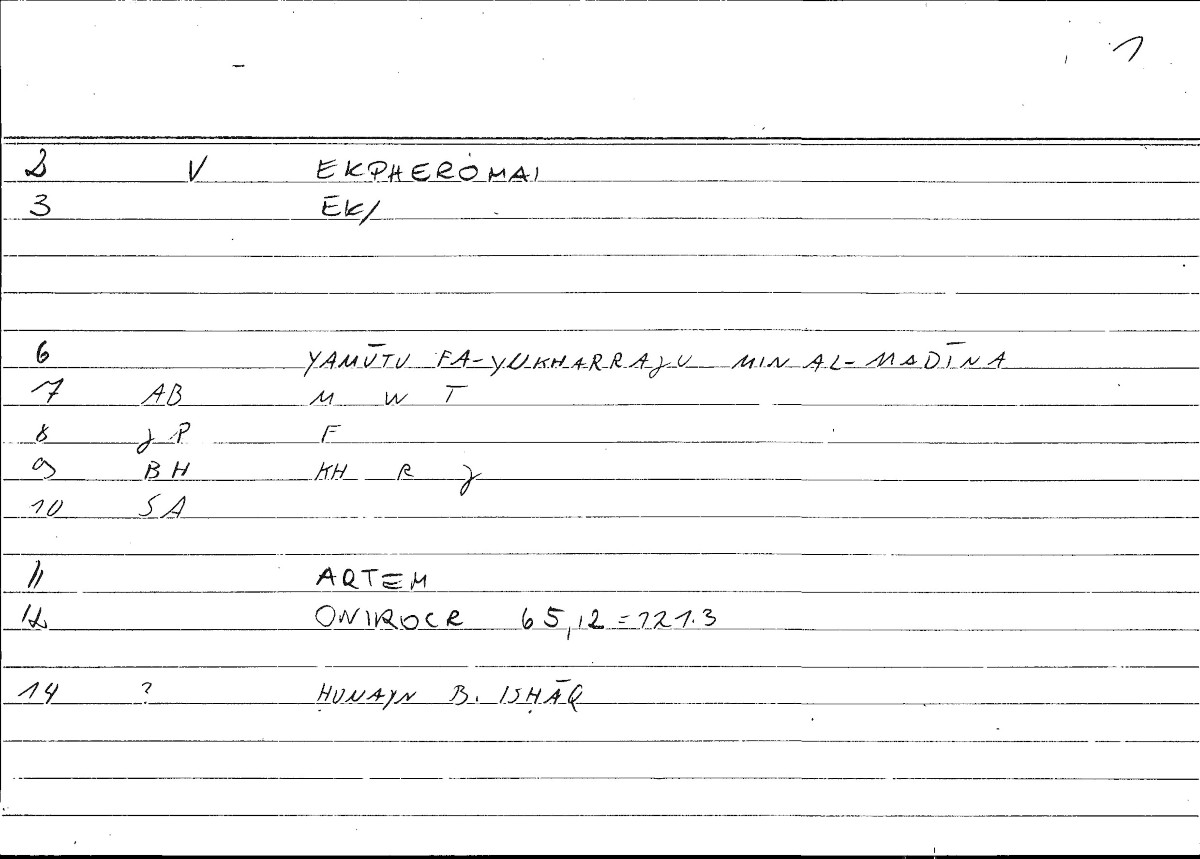 1
2 V EKPHERÓMAI
3 EK/
6 YAMŪTU FA-YUKHARRAJU MIN AL-MADĪNA
7 AB M W T
8 JP F
9 BH KH R J
10 SA
11 ARTEM
12 ONIROCR 65,12=121.3
14 ? ḤUNAYN B. ISḤĀQ